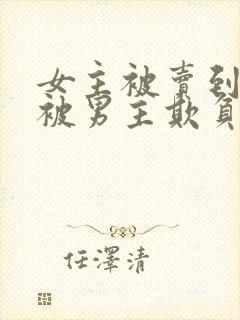 女主被賣到
被男主欺負
任澤清